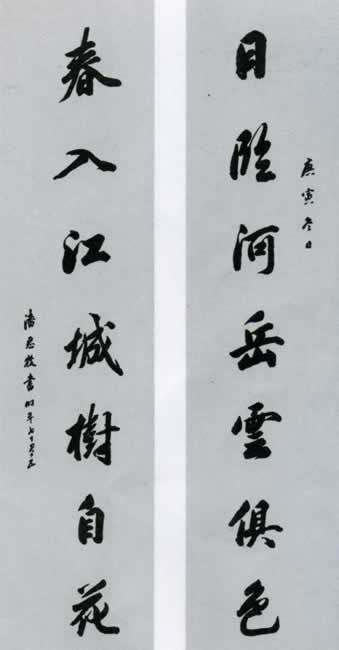 庚寅冬日
日臨河岳雲俱色
春入江城樹自花
潘思牧書時年七十有五